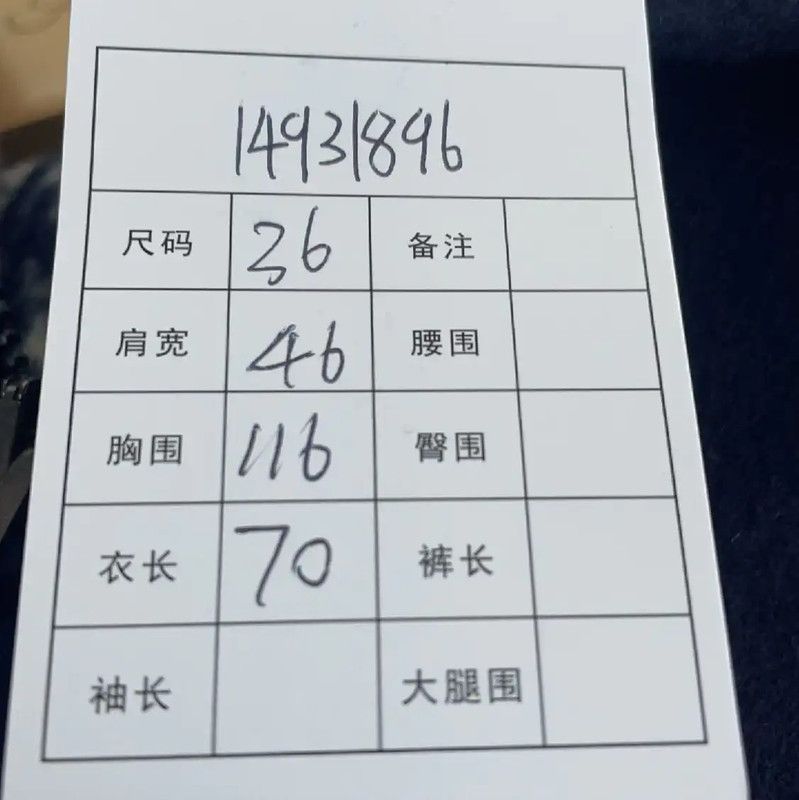 14931896
尺码 36 备注
肩宽 46 腰围
胸围 116 臀围
衣长 70 裤长
袖长 大腿围